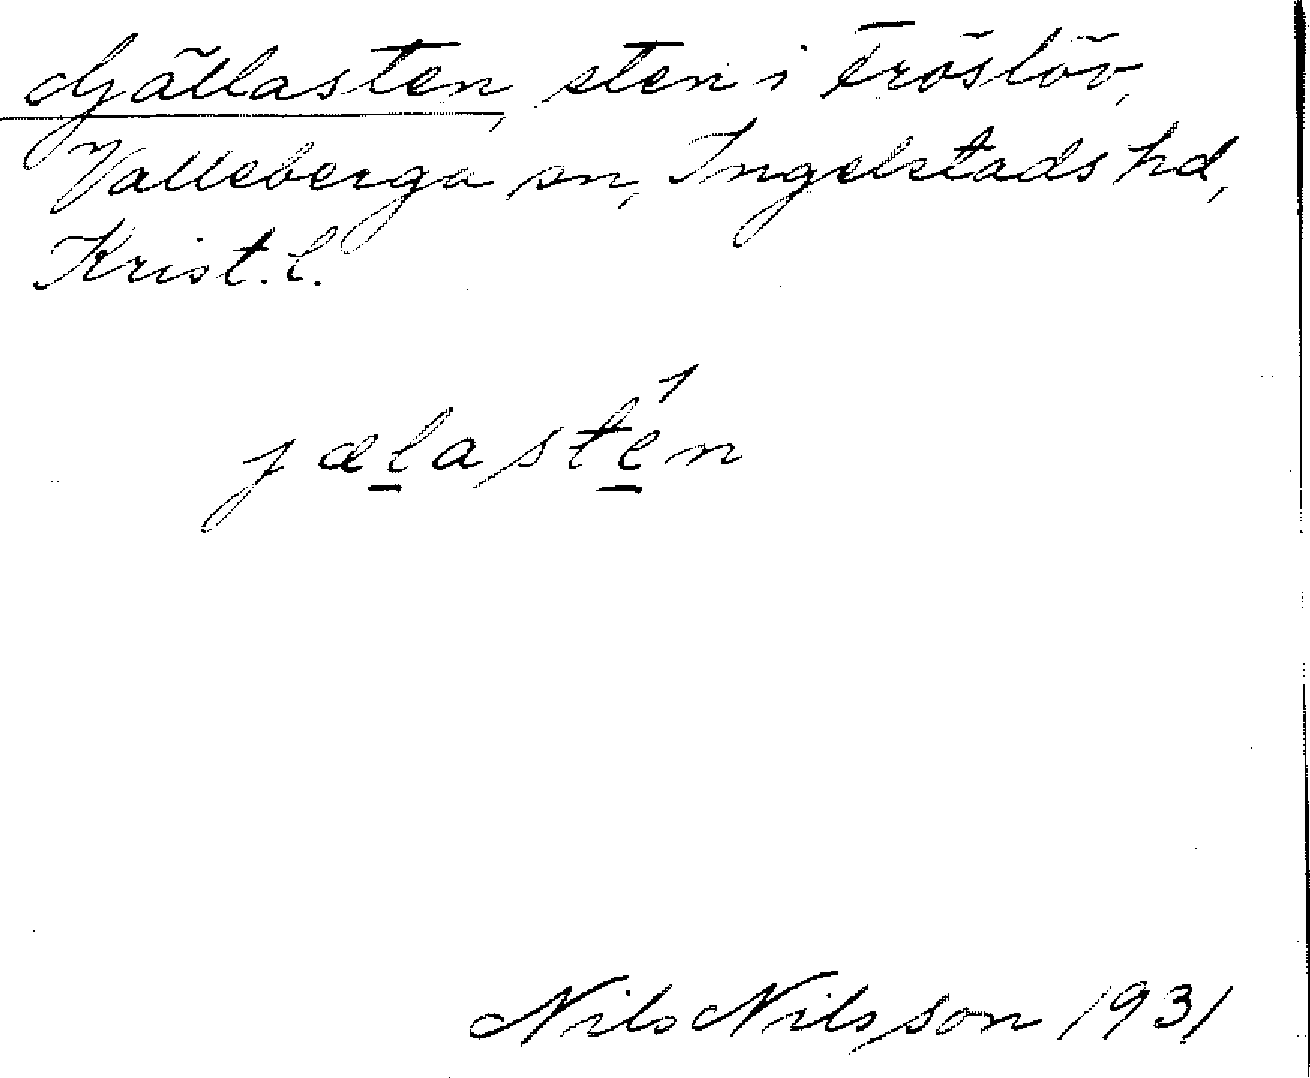 Gjällasten, sten i Fröslöv,
Valleberga sn, Ingelstads hd,
Krist. l.
jælastén
Nils Nilsson 1931